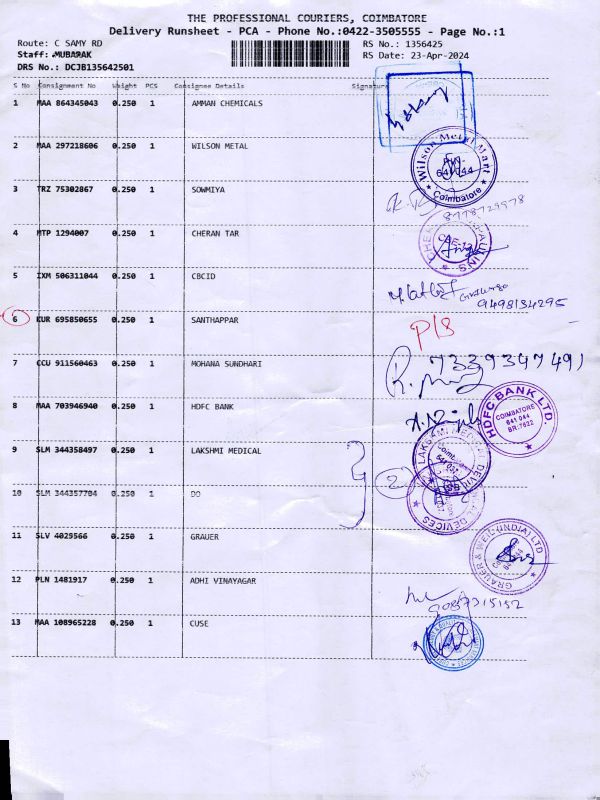 THE PROFESSIONAL COURIERS, COIMBATORE
Delivery Runsheet - PCA - Phone No.:0422-3505555 - Page No.:1
Route: C SAMY RD RS No.: 1356425
Staff: MUBARAK RS Date: 23-Apr-2024
DRS No.: DCJB135642501
S No Consignment No Weight PCS Consignee Details Signature
1 MAA 864345043 0.250 1 AMMAN CHEMICALS
2 MAA 297218606 0.250 1 WILSON METAL
Wilson Metal Mart
641 044
Coimbatore
3 TRZ 75302867 0.250 1 SOWMIYA
8778729978
4 MTP 1294007 0.250 1 CHERAN TAR
5 IXM 506311044 0.250 1 CBCID
9498134295
6 KUR 695850655 0.250 1 SANTHAPPAR
P/S
7 CCU 911560463 0.250 1 MOHANA SUNDHARI
7339347491
8 MAA 703946940 0.250 1 HDFC BANK
HDFC BANK LTD.
COIMBATORE
641 044
BR:7622
9 SLM 344358497 0.250 1 LAKSHMI MEDICAL
2
10 SLM 344357704 0.250 1 DO
11 SLV 4029566 0.250 1 GRAUER
GRAUER & WEIL (INDIA) LTD
12 PLN 1481917 0.250 1 ADHI VINAYAGAR
9087315152
13 MAA 108965228 0.250 1 CUSE